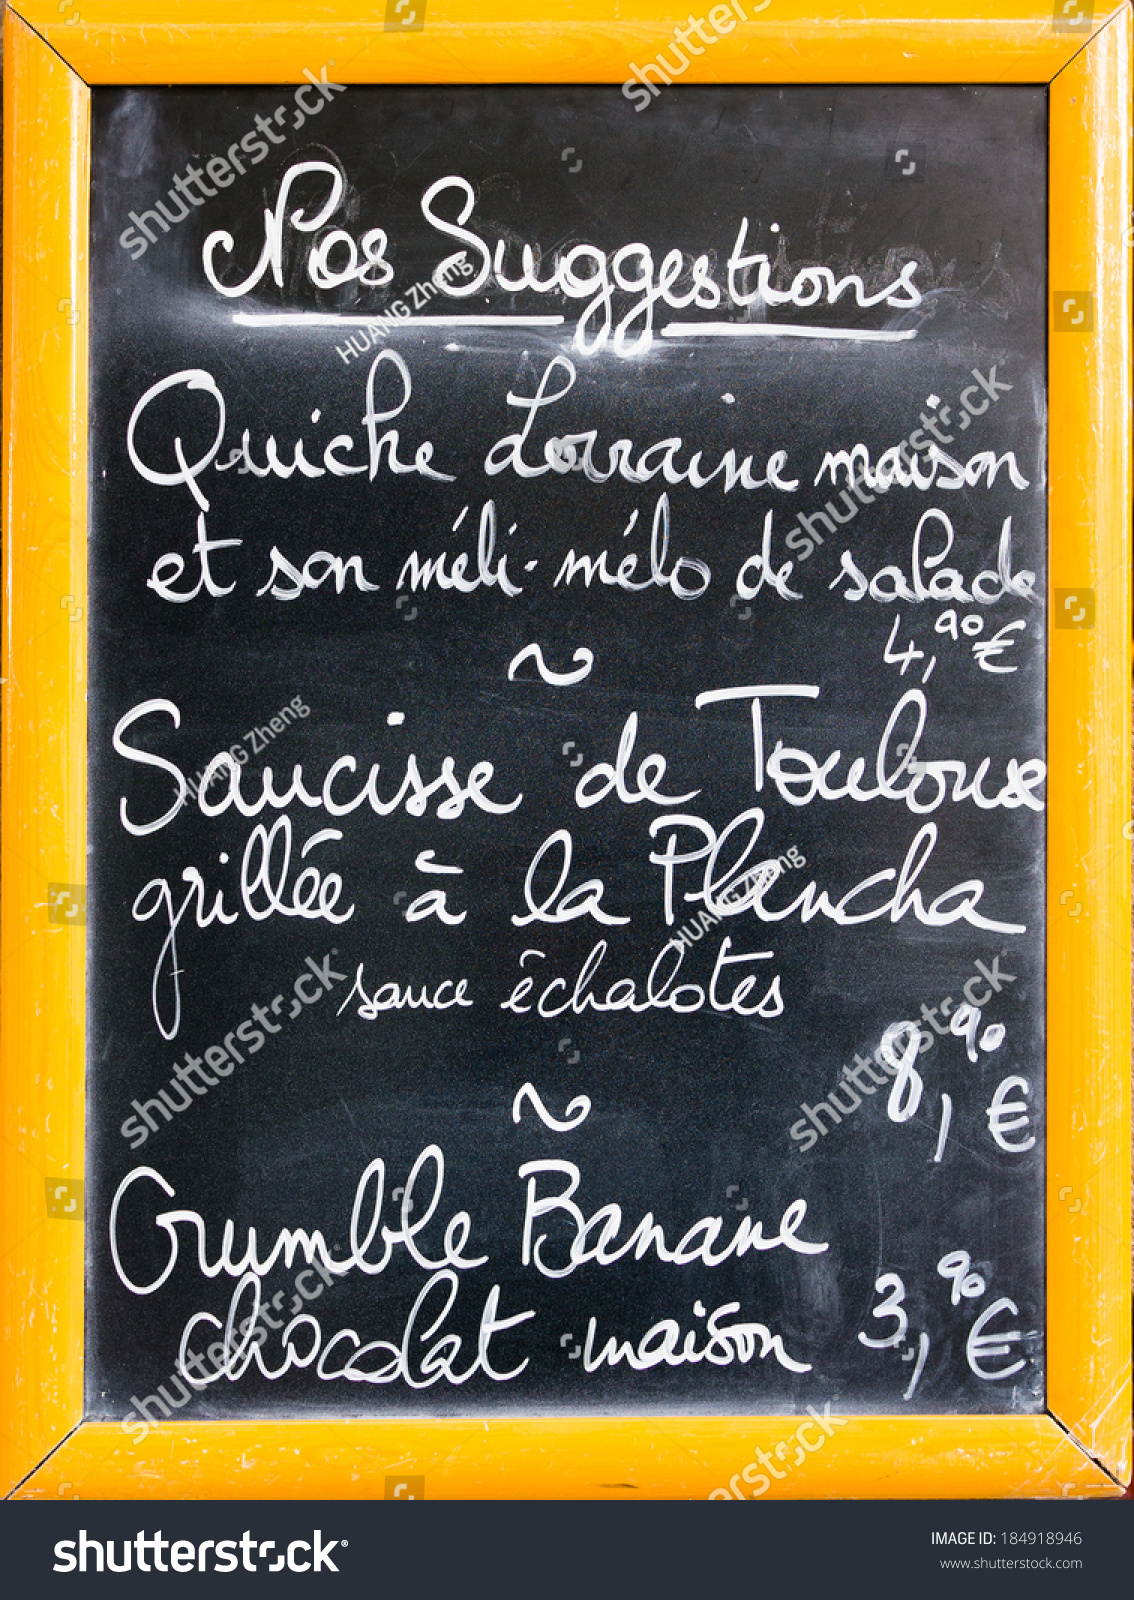 Nos Suggestions
Quiche Lorraine maison
et son méli-mélo de salade
4,90€
~
Saucisse de Toulouse
grillée à la Plancha
sauce échalotes
8,90€
~
Crumble Banane
chocolat maison 3,90€
shutterstock
HUANG Zheng
IMAGE ID: 184918946
www.shutterstock.com